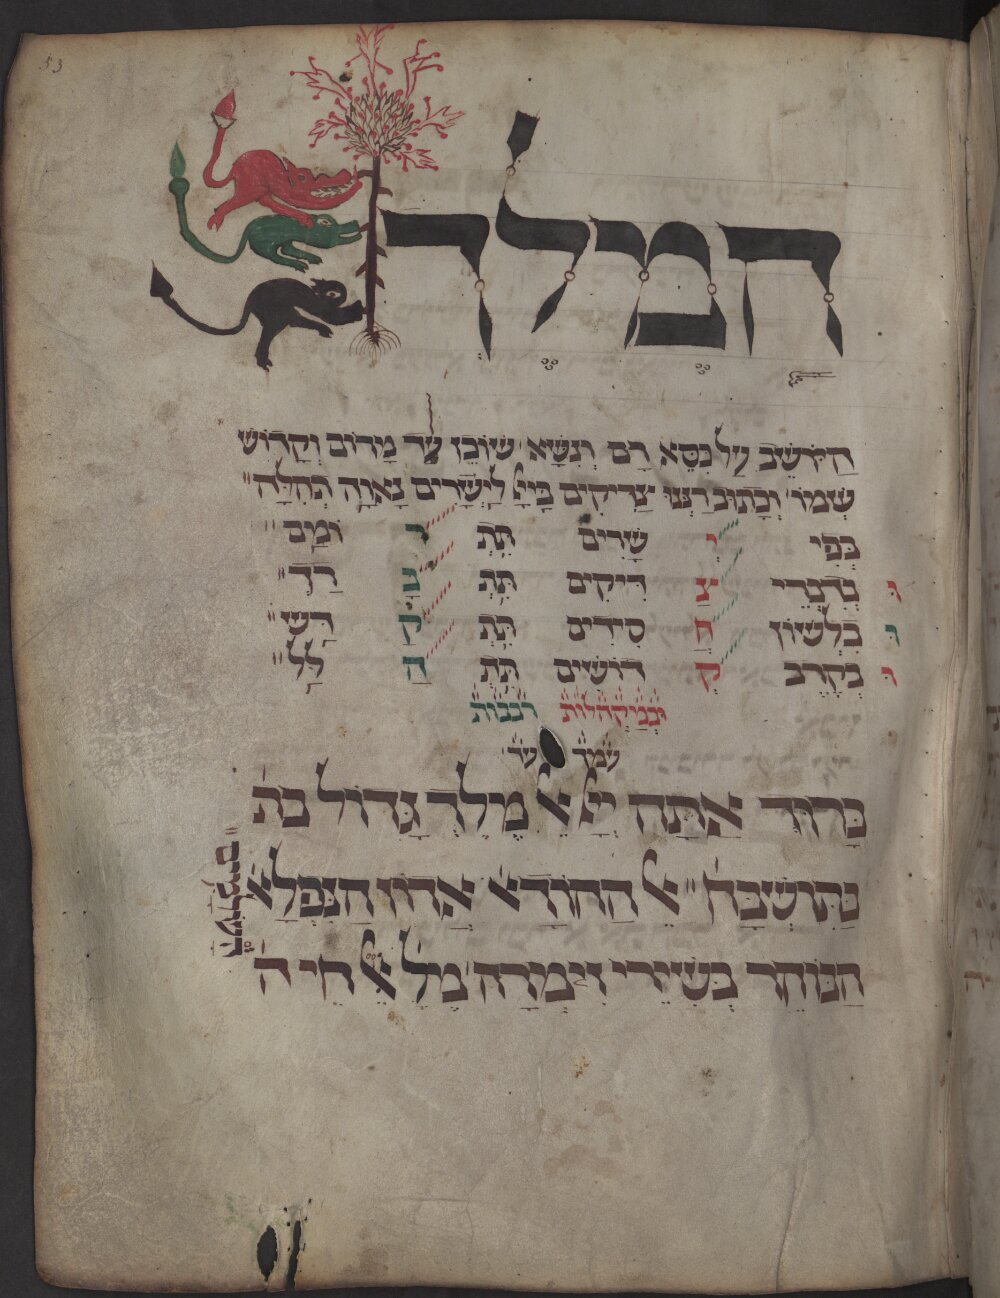 53
המלך
הַיּוֹשֵׁב עַל כִּסֵּא רָם וְנִשָּׂא שׁוֹכֵן עַד מָרוֹם וְקָדוֹשׁ
שְׁמוֹ וְכָתוּב רַנְּנוּ צַדִּיקִים בַּייָ לַיְשָׁרִים נָאוָה תְהִלָּה
בְּפִי יְ שָׁרִים תִּתְ ר וֹמַם
וּ בְדִבְרֵי צַ דִּיקִים תִּתְ בָּ רַךְ
וּ בִלְשׁוֹן חֲ סִידִים תִּתְ קַ דַּשׁ
וּ בְקֶרֶב קְ דוֹשִׁים תִּתְ הַ לַּל
ובמקהלות רבבות
עמך עד
בָּרוּךְ אַתָּה יְיָ אֵל מֶלֶךְ גָּדוֹל בַּתִּ
בַּתִּושְׁבָּחֹת אֵל הַהוֹדָאֹ אֲדוֹן הַנִּפְלָאֹ
הַבּוֹחֵר בְּשִׁירֵי זִימְרָה מֶלֶ אֵל חֵי הָ
הָעוֹלָמִים